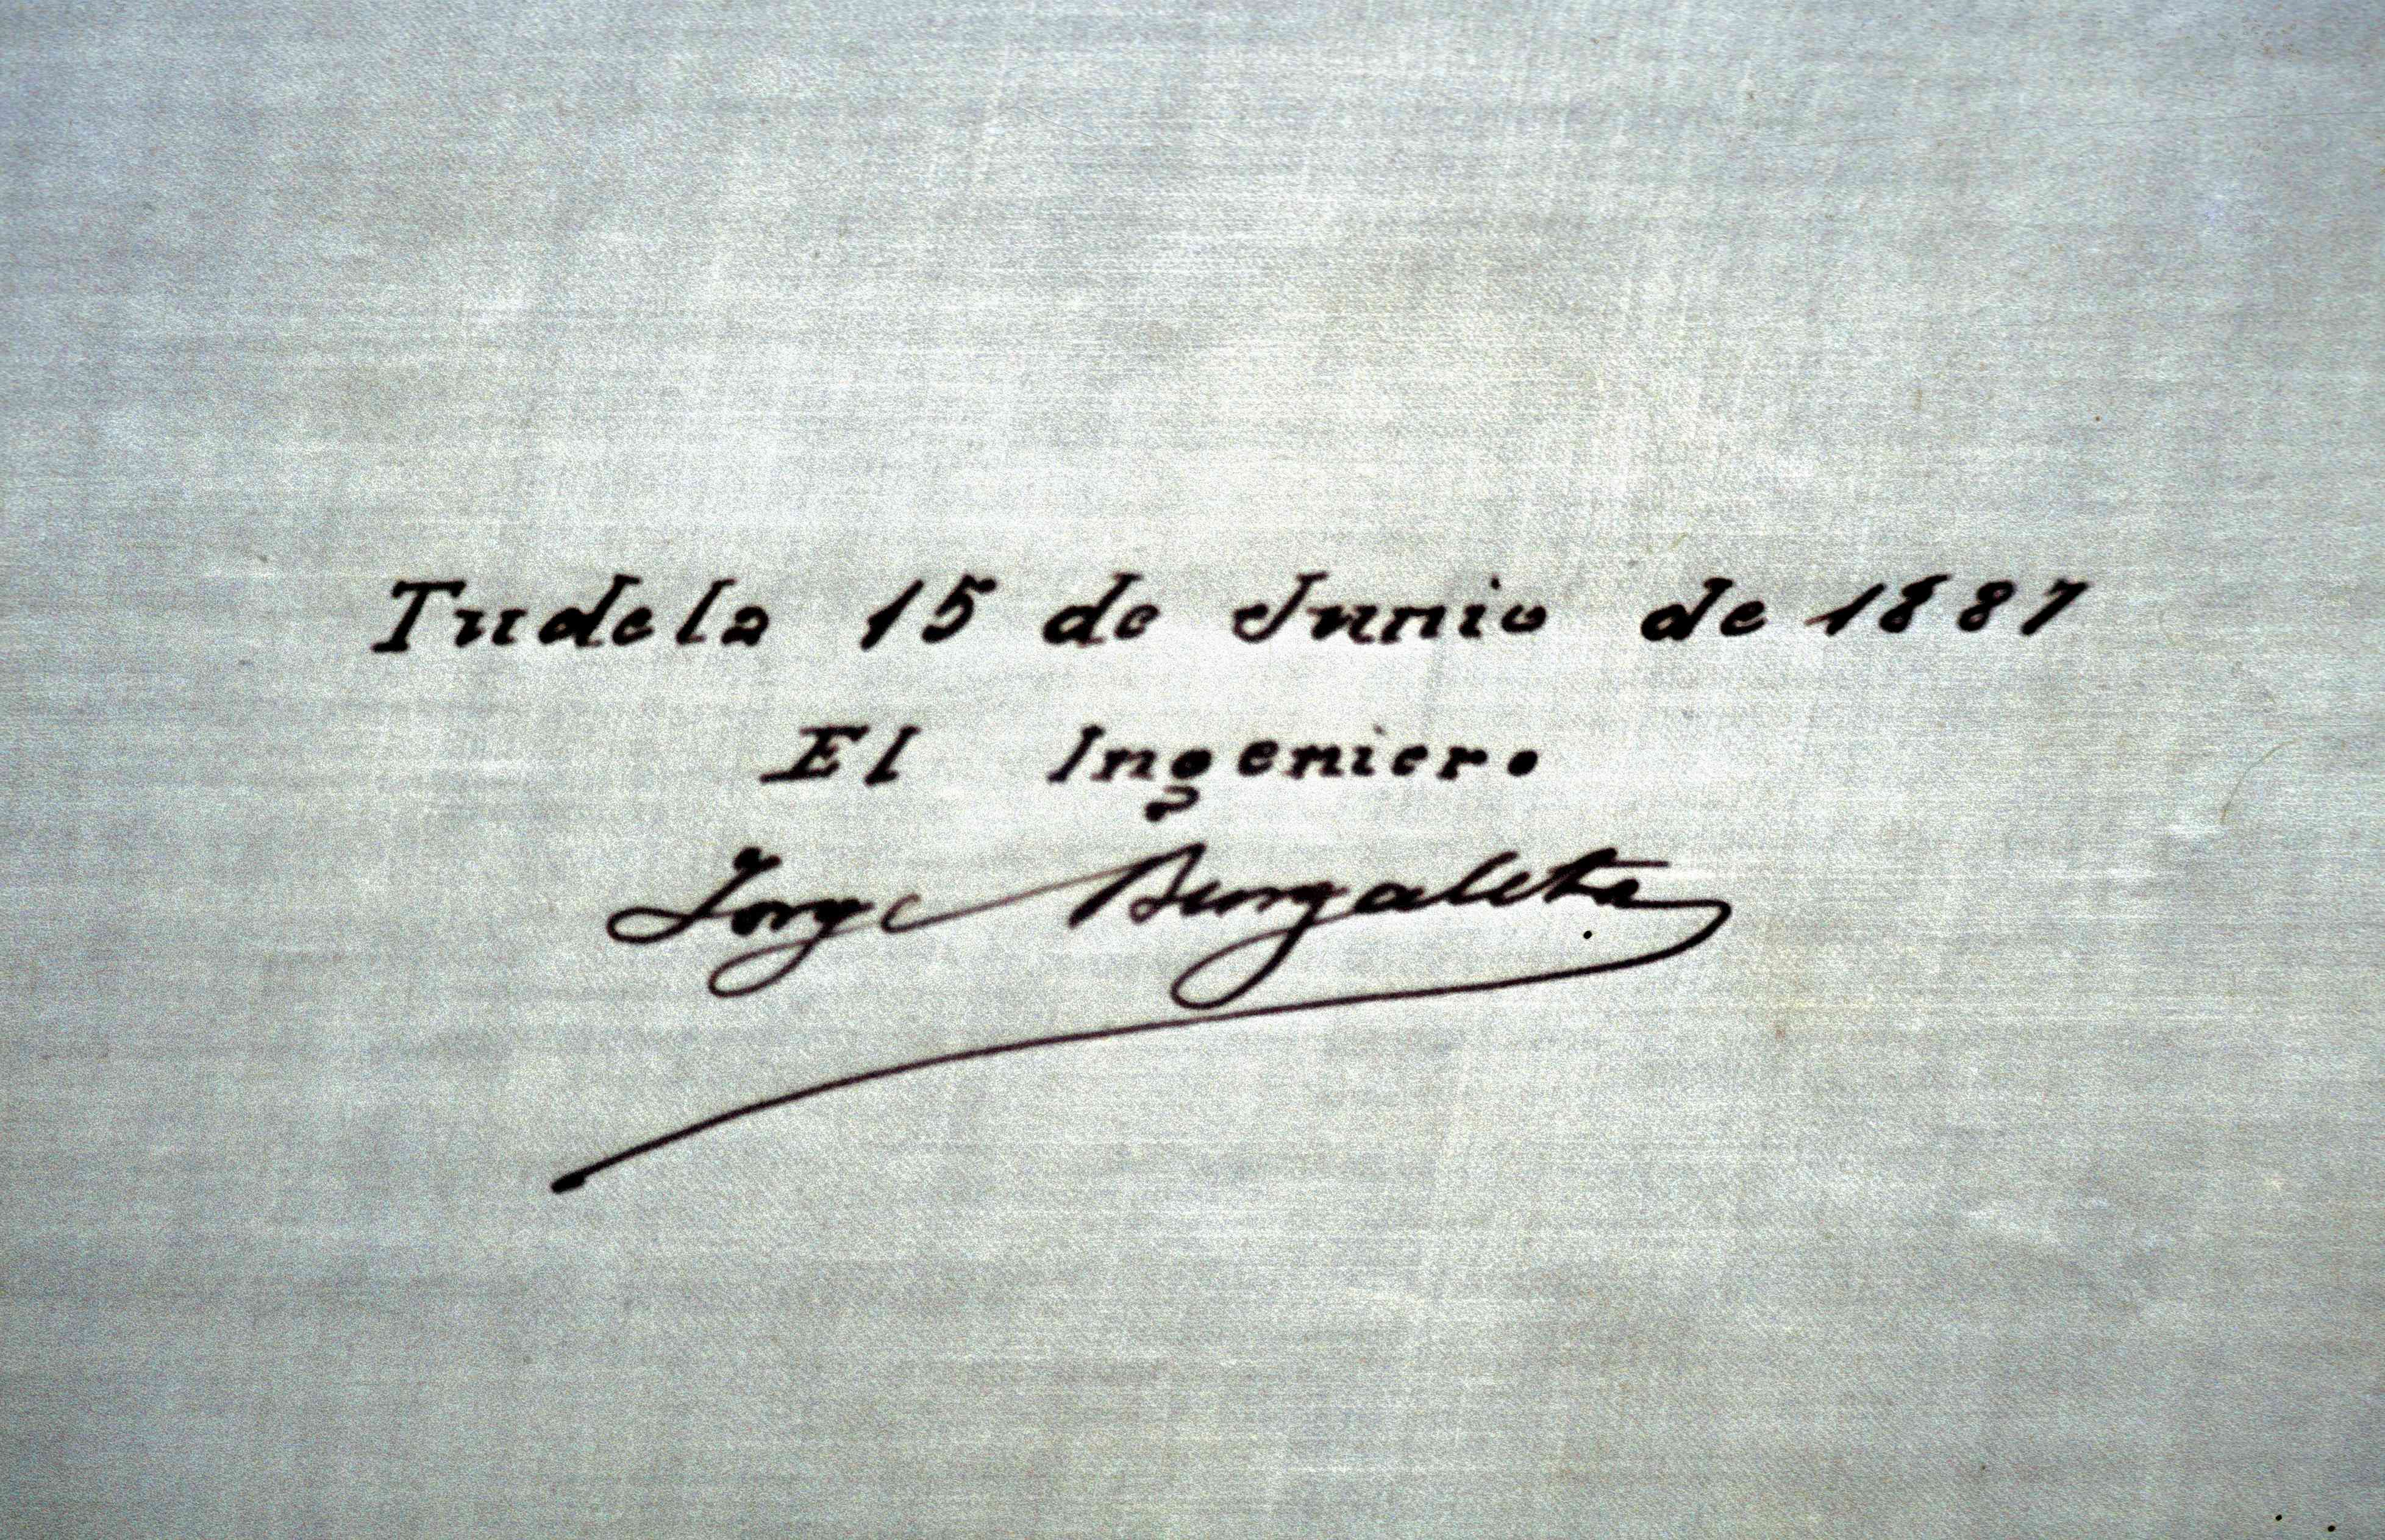 Tudela 15 de Junio de 1887
El Ingeniero
Jorge Burgaleta